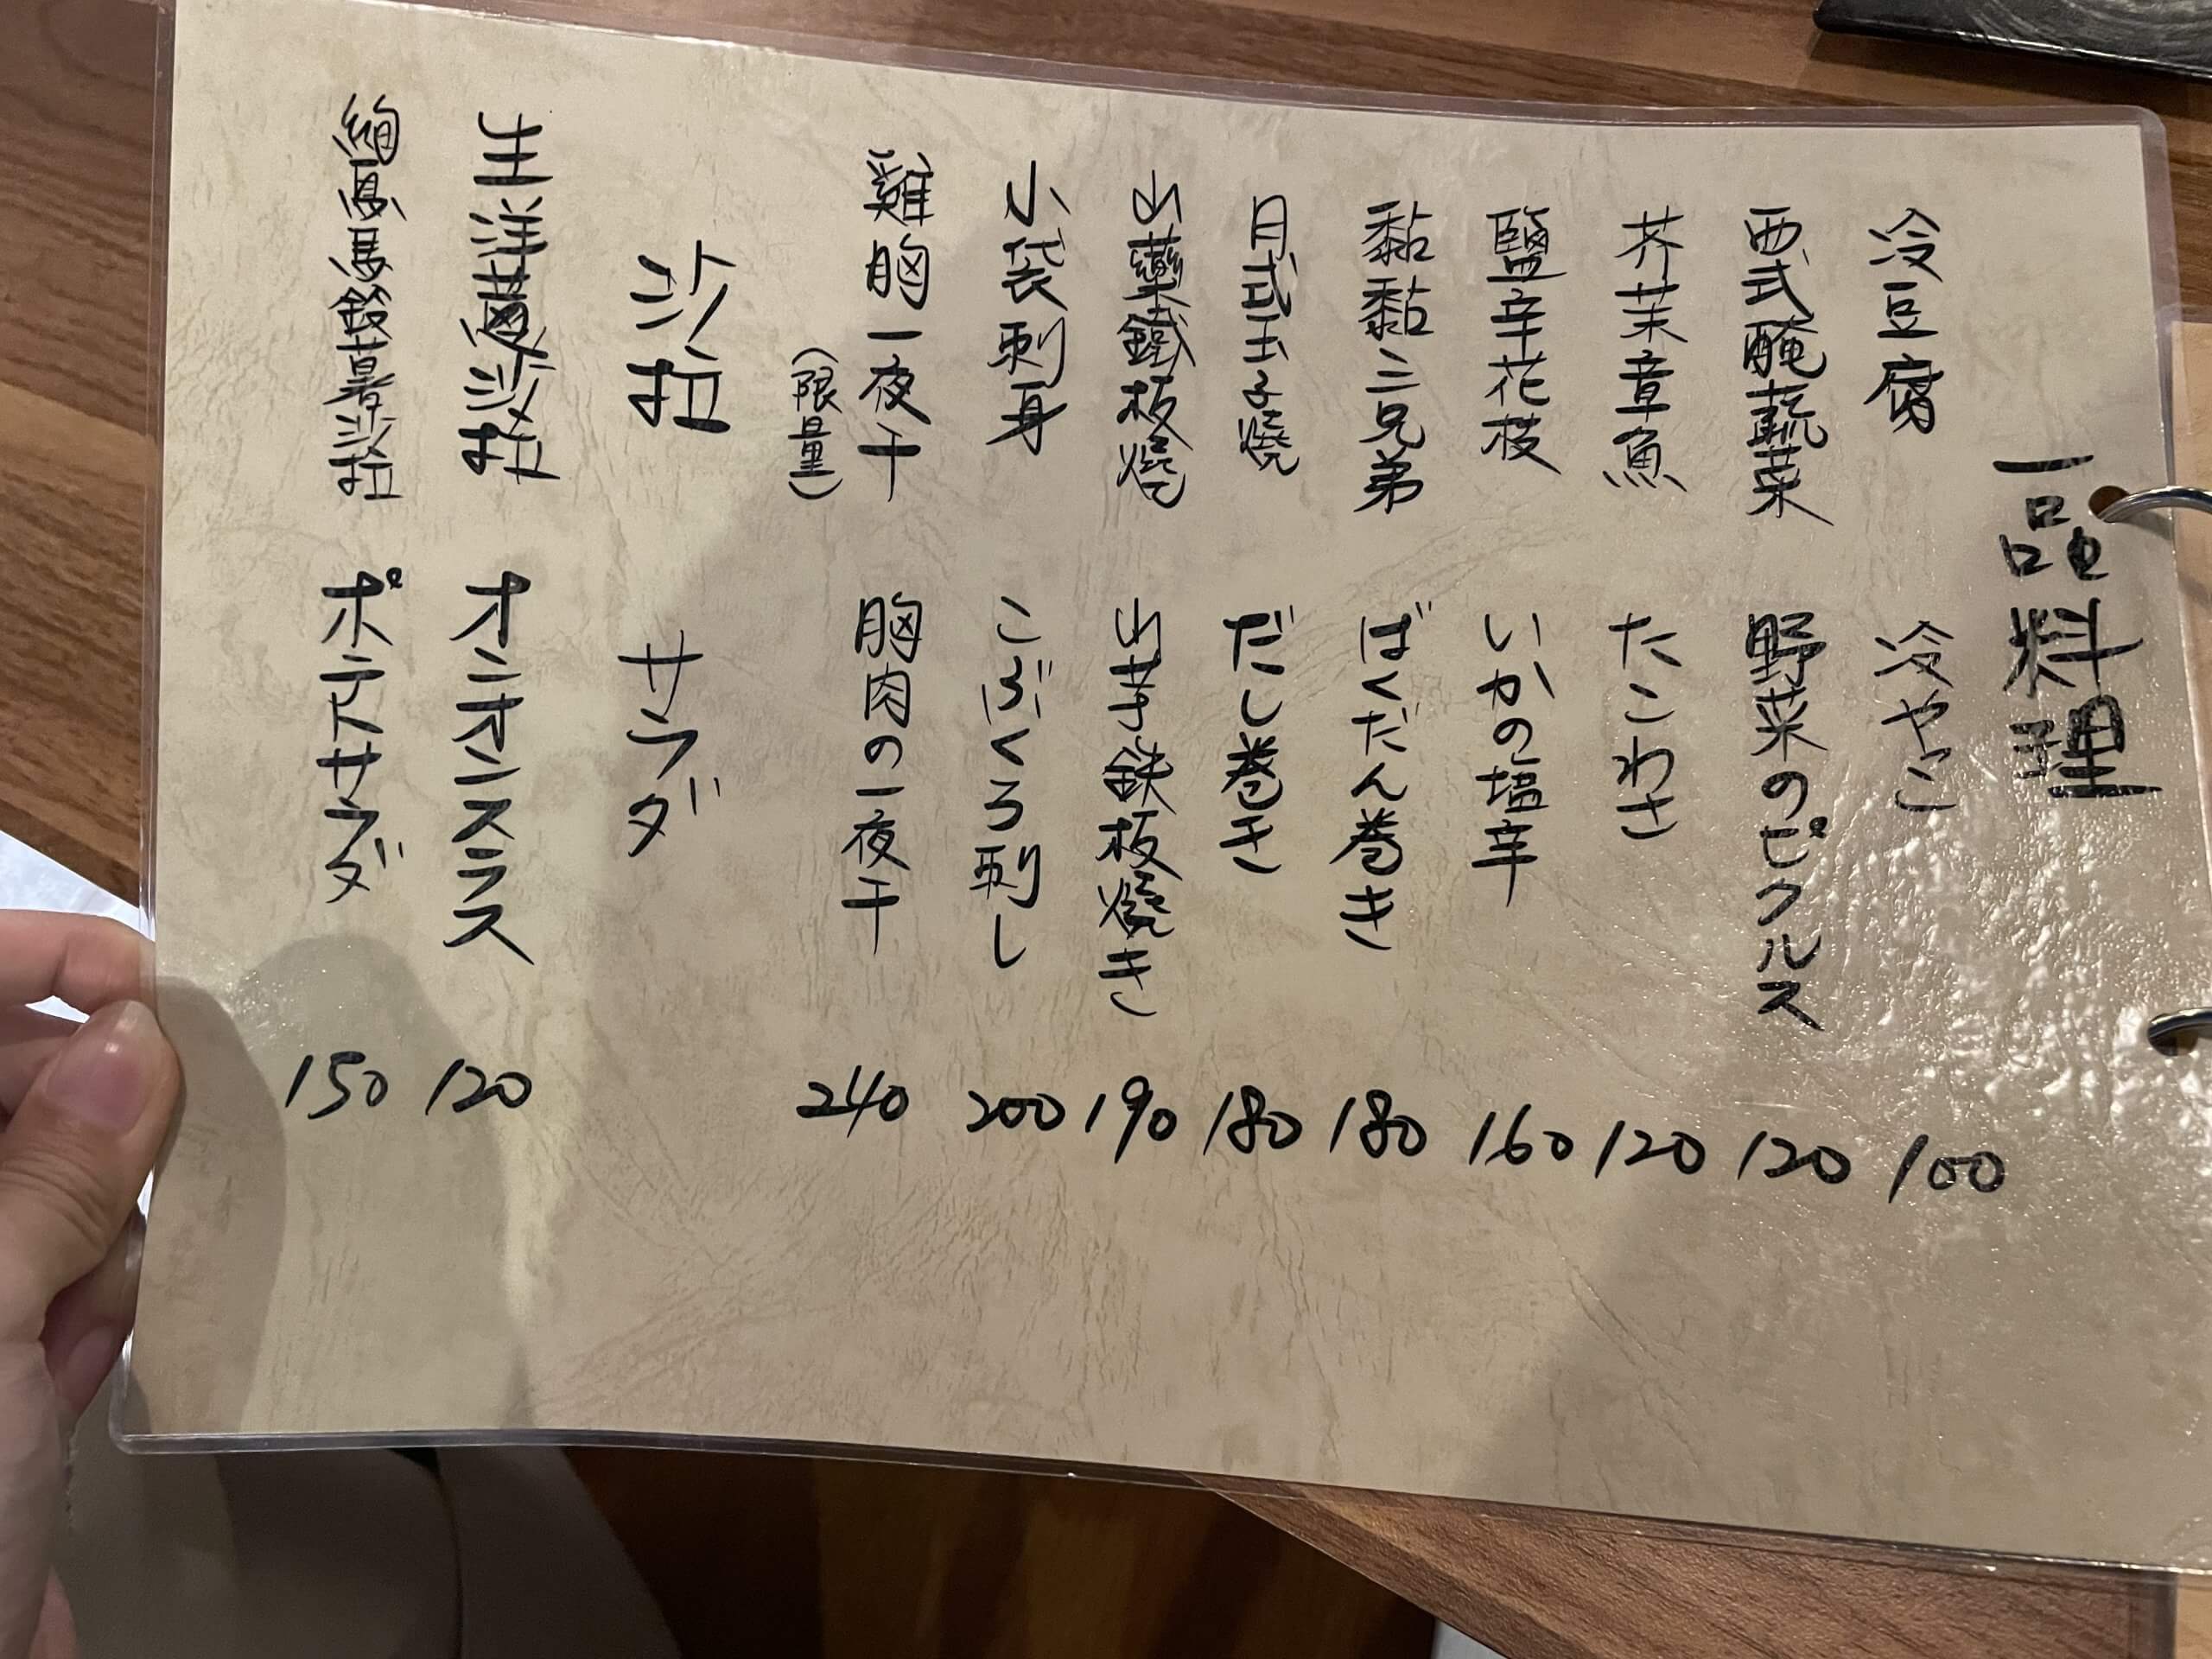 一品料理
冷豆腐 冷やっこ 100
西式醃蔬菜 野菜のピクルス 120
芥茉章魚 たこわさ 120
鹽辛花枝 いかの塩辛 160
黏黏三兄弟 ばくだん巻き 180
月式玉子燒 だし巻き 180
山藥鐵板燒 山芋鉄板焼き 190
小袋刺身 こぶくろ刺し 200
雞胸一夜干 胸肉の一夜干 240
(限量)
沙拉 サラダ
生洋蔥沙拉 オニオンスラス 120
馬鈴薯沙拉 ポテトサラダ 150